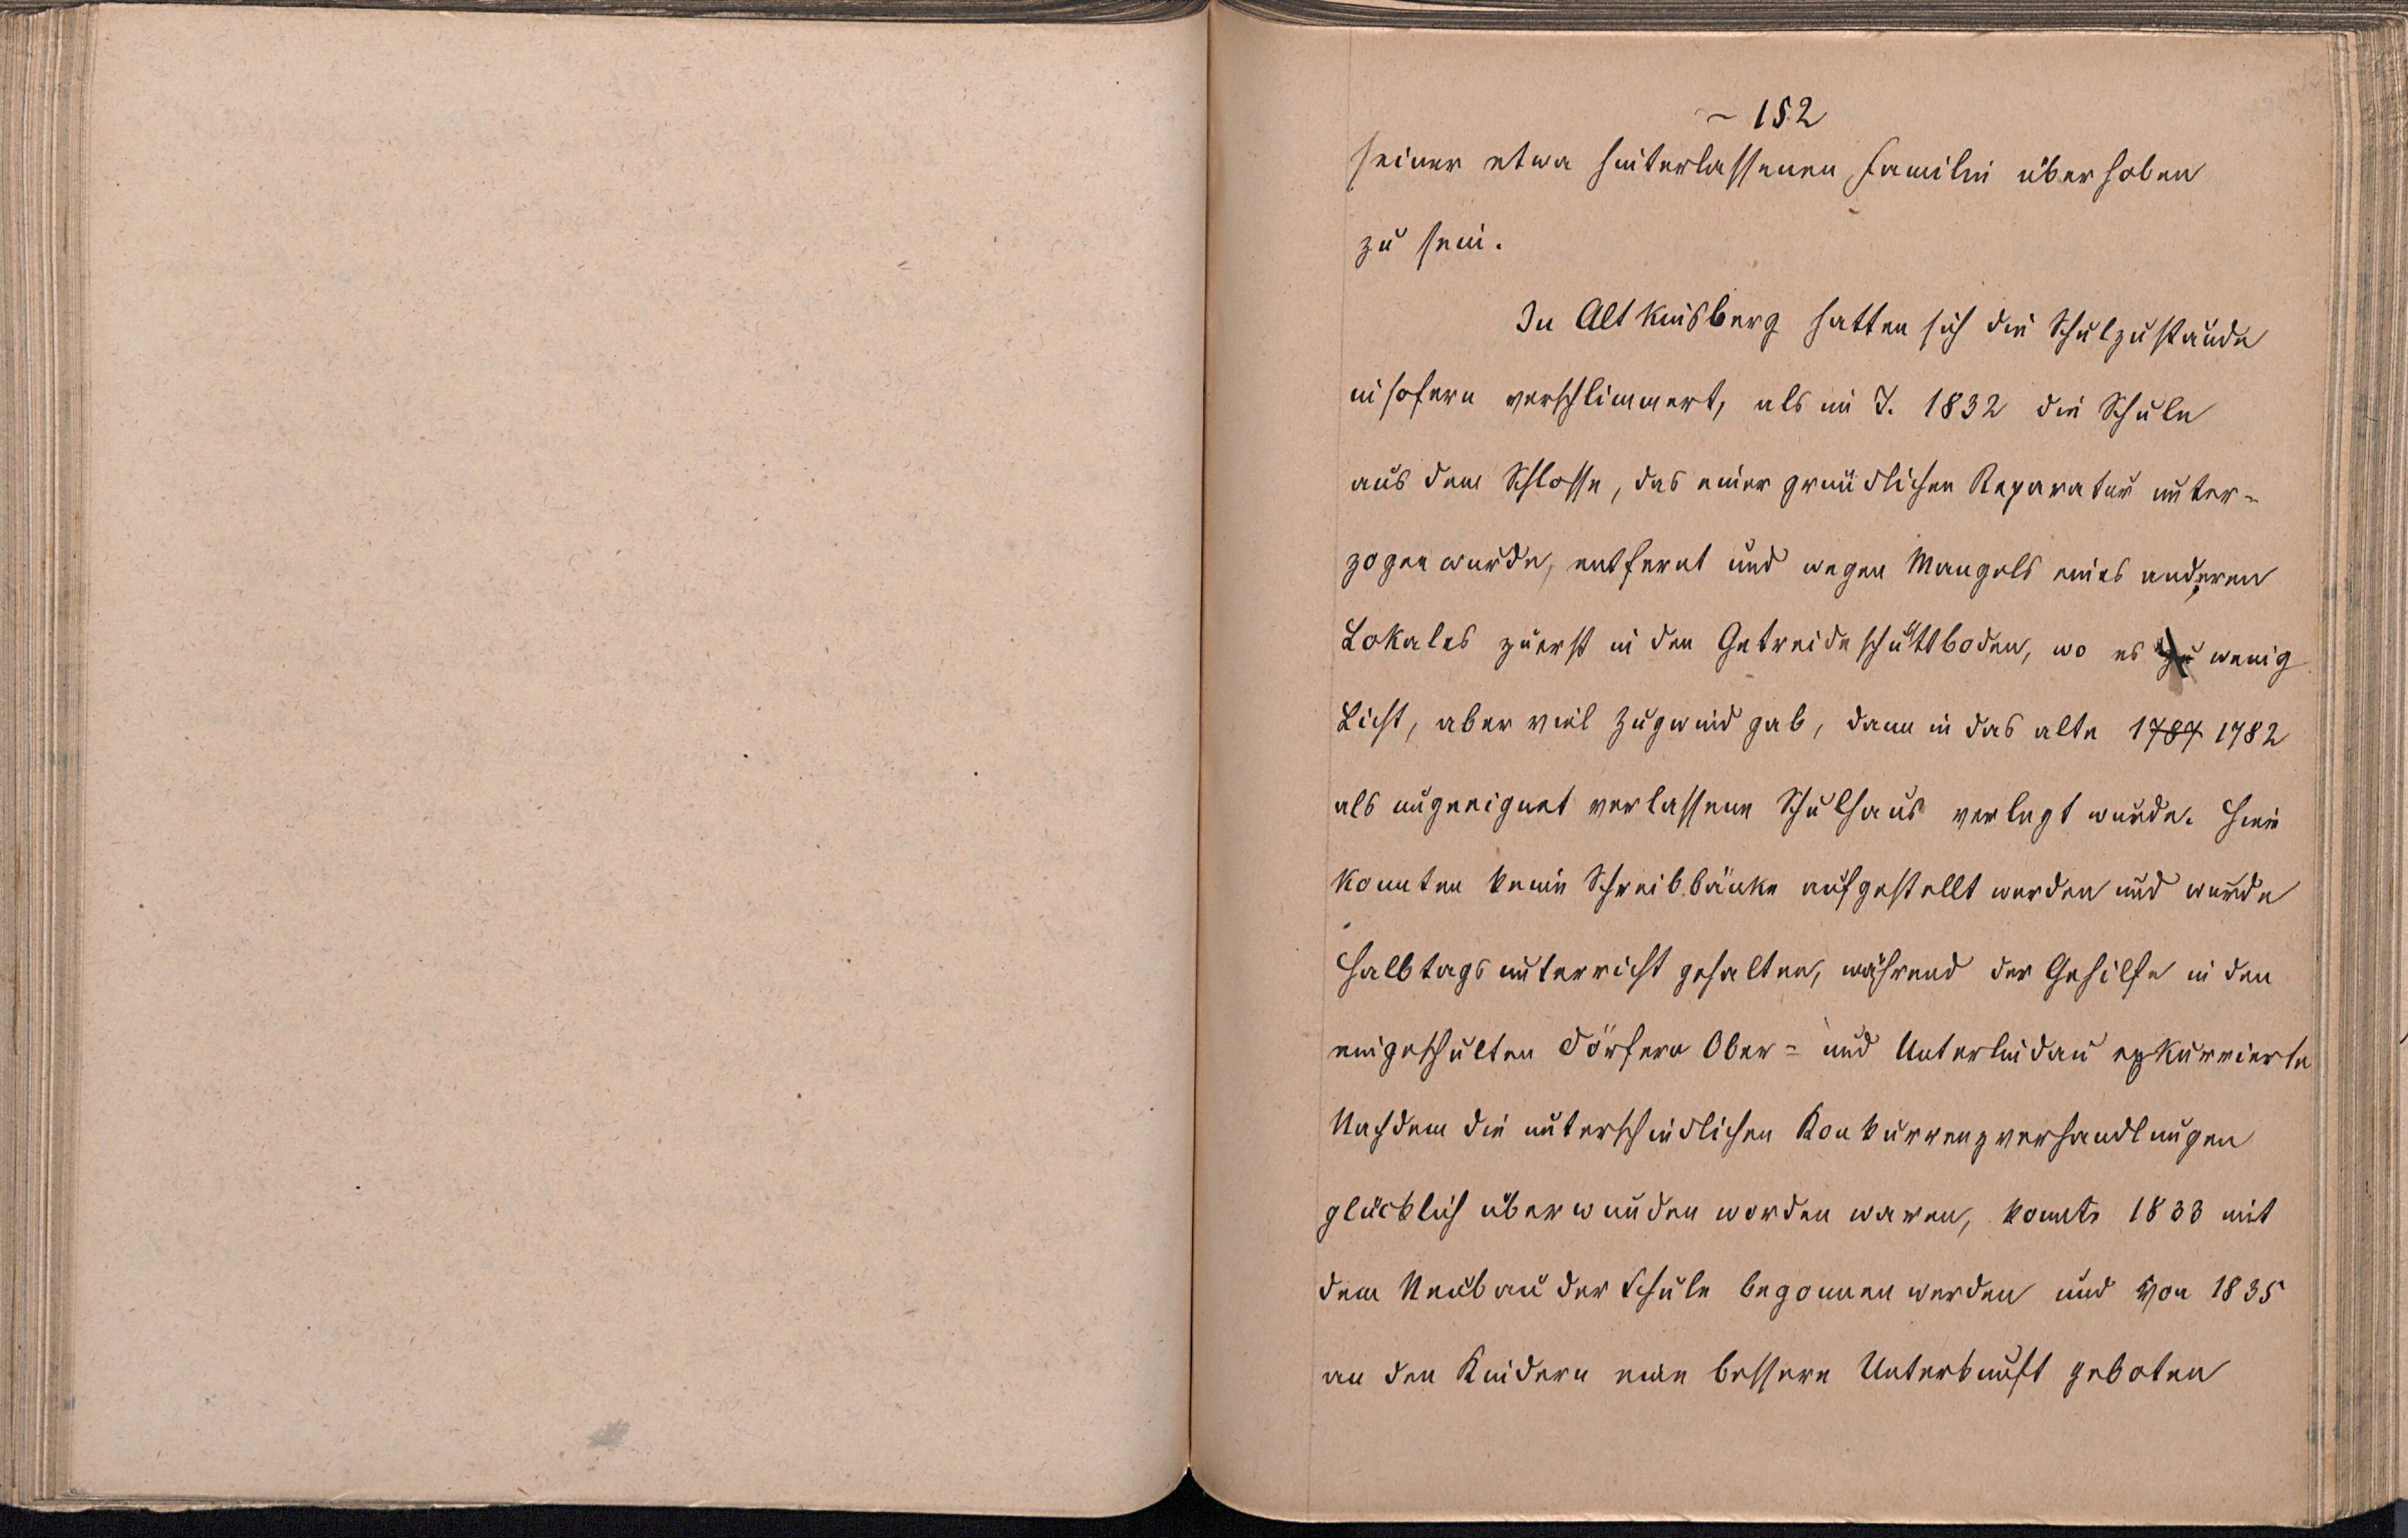 ~ 152
seiner etwa hinterlassenen Familie überhoben
zu sein.
In Altkinsberg hatten sich die Schulzustände
insofern verschlimmert, als im J. 1832 die Schule
aus dem Schlosse, das einer gründlichen Reparatur unter-
zogen wurde, entfernt und wegen Mangels eines anderen
Lokales zuerst in den Getreideschüttboden, wo es zu wenig
Licht, aber viel Zugwind gab, dann in das alte 1787 1782
als ungeeignet verlassene Schulhaus verlegt wurde. Hier
konnten keine Schreibbänke aufgestellt werden und wurde
Halbtagsunterricht gehalten, während der Gehilfe in den
eingeschulten Dörfern Ober= und Unterlindau exkurrierte
Nachdem die unterschiedlichen Konkurrenzverhandlungen
glücklich überwunden worden waren, konnte 1833 mit
dem Neubau der Schule begonnen werden und von 1835
an den Kindern eine bessere Unterkunft geboten